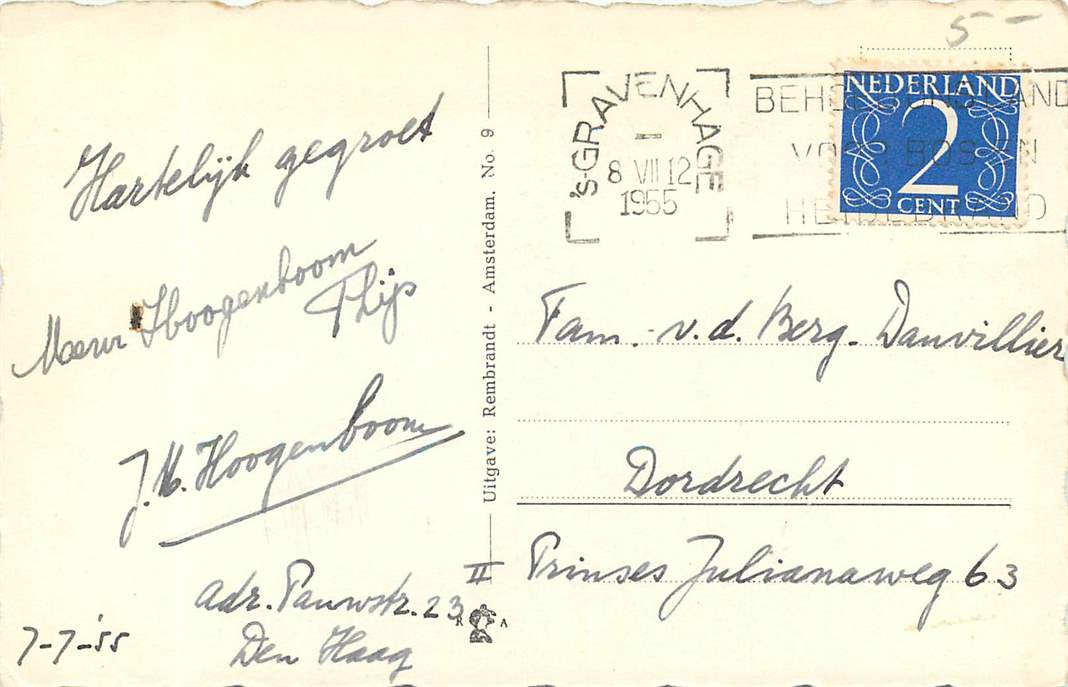 5-
Hartelijk gegroet
Hoogenboom
Thijs
J.M. Hoogenboom
adr. Pauwstr. 23 II
Den Haag
7-7-'55
Uitgave: Rembrandt - Amsterdam. No. 9
R A
's-GRAVENHAGE
8 VII 12
1955
NEDERLAND
2
CENT
Fam. v.d. Berg. Danvillier
Dordrecht
Prinses Julianaweg 63